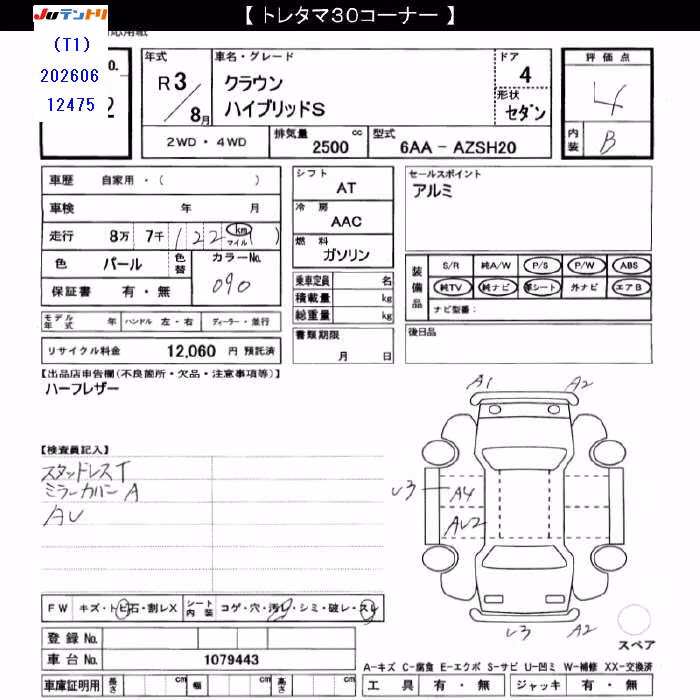 【 トレタマ30コーナー 】
JUテントリ
(T1)
202606
12475
年式 R3/8月
車名・グレード
クラウン
ハイブリッドS
ドア 4
形状 セダン
評価点 4
内装 B
2WD・4WD
排気量 2500 cc
型式 6AA - AZSH20
車歴 自家用・( )
車検 年 月
走行 8万 7千 122 km マイル ( )
色 パール 色替 カラーNo. 090
保証書 有・無
モデル年式 年 ハンドル 左・右 ディーラー・並行
リサイクル料金 12,060 円 預託済
シフト AT
冷房 AAC
燃料 ガソリン
乗車定員 名
積載量 kg
総重量 kg
書類期限 月 日
セールスポイント
アルミ
装備品 S/R 純A/W P/S P/W ABS
純TV 純ナビ 革シート 外ナビ エアB
ナビ型番:
後日品
【出品店車告欄(不良箇所・欠品・注意事項等)】
ハーフレザー
【検査員記入】
スタッドレスT
ミラーカバー A
AU
A1 A2
U3 A4
AU2
U3 A2
スペア
FW キズ・トビ石・割レX シート内装 コゲ・穴・汚レ・シミ・破レ・スレ
登録 No.
車台 No. 1079443
車庫証明用 長さ cm 幅 cm 高さ cm
A-キズ C-腐食 E-エクボ S-サビ U-凹ミ W-補修 XX-交換済
工具 有・無 ジャッキ 有・無